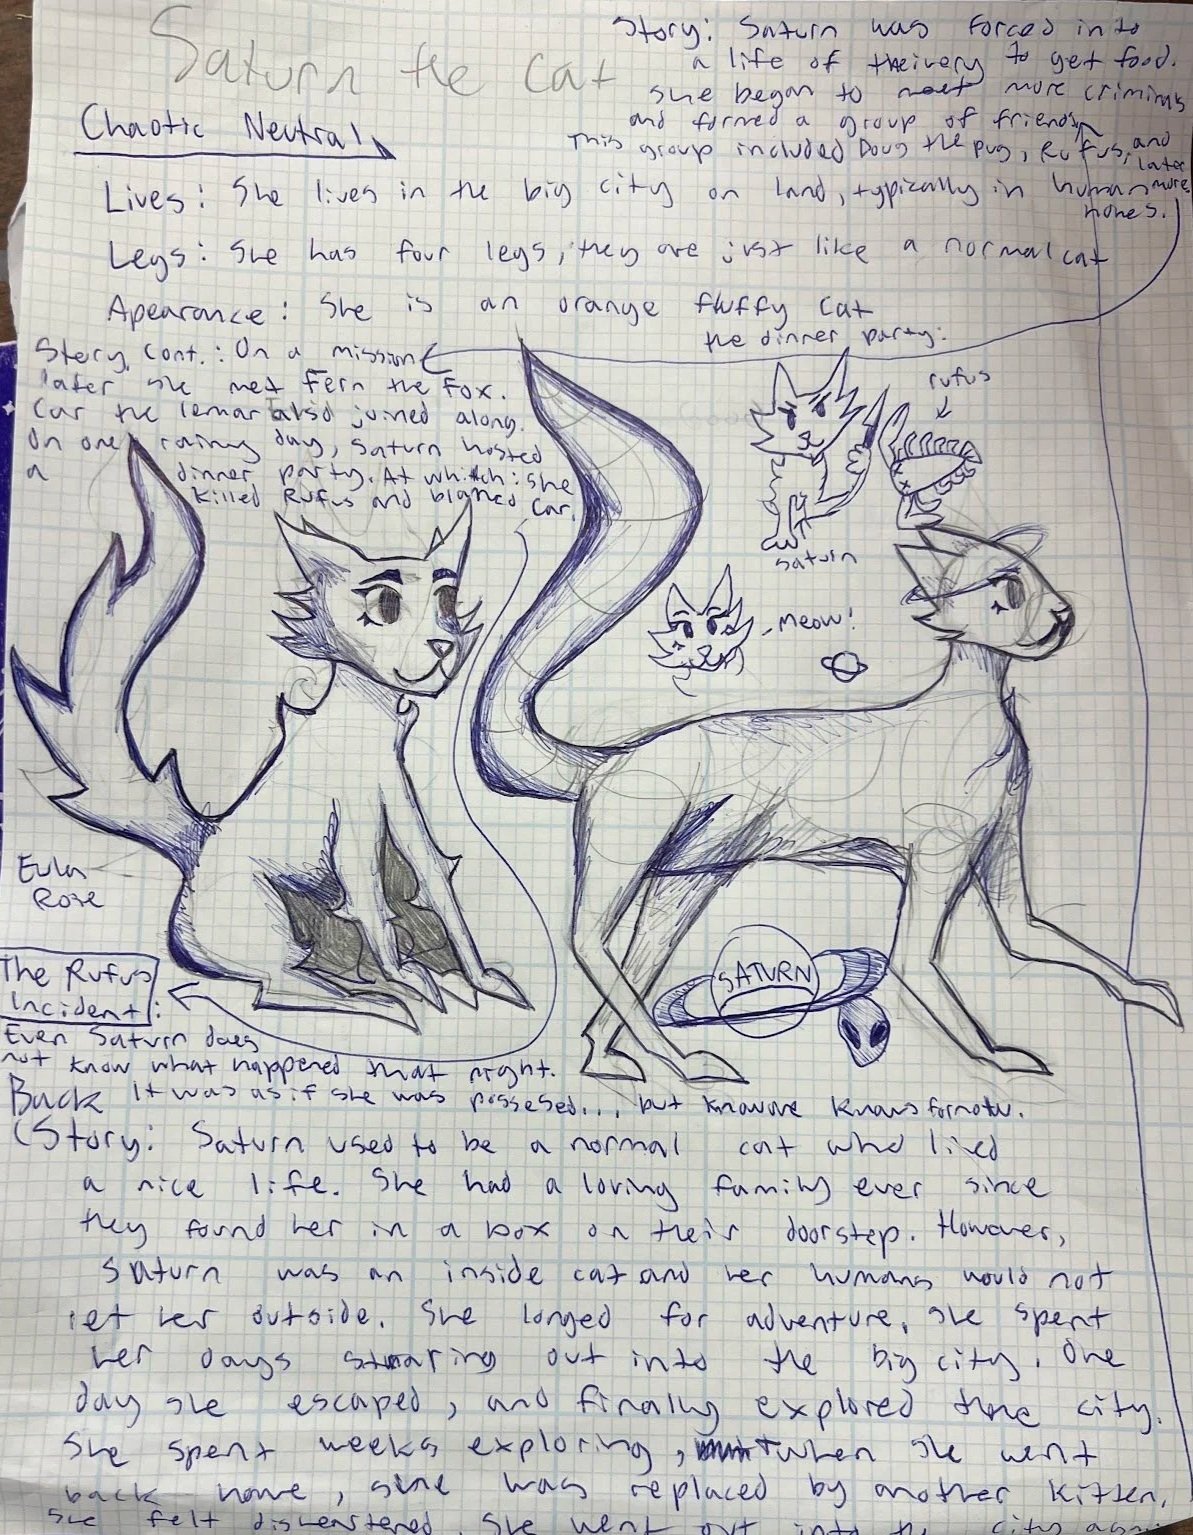 Saturn the Cat
Chaotic Neutral
Story: Saturn was forced into
a life of theivery to get food.
she began to meet more criminals
and formed a group of friends
This group included Doug the pug, Rufus, and
later
more
Lives: She lives in the big city on land, typically in human
homes.
Legs: She has four legs, they are just like a normal cat
Apearance: She is an orange fluffy cat
Story cont.: On a mission
later she met Fern the Fox.
Car the lemar also joined along.
On one rainy day, Saturn hosted
a dinner party. At whitch: she
killed Rufus and blamed Car.
the dinner party:
rufus
saturn
meow!
Eula
Rose
SATURN
The Rufus
Incident:
Even Saturn does
not know what happened that night.
It was as if she was possesed... but knowone knows fornotu.
Back
(Story: Saturn used to be a normal cat who lived
a nice life. She had a loving family ever since
they found her in a box on their doorstep. However,
Saturn was an inside cat and her humans would not
let her outside. She longed for adventure, she spent
her days staring out into the big city. One
day she escaped, and finally explored the city.
She spent weeks exploring, when she went
back home, she was replaced by another kitten.
She felt disheartened. She went out into the city again